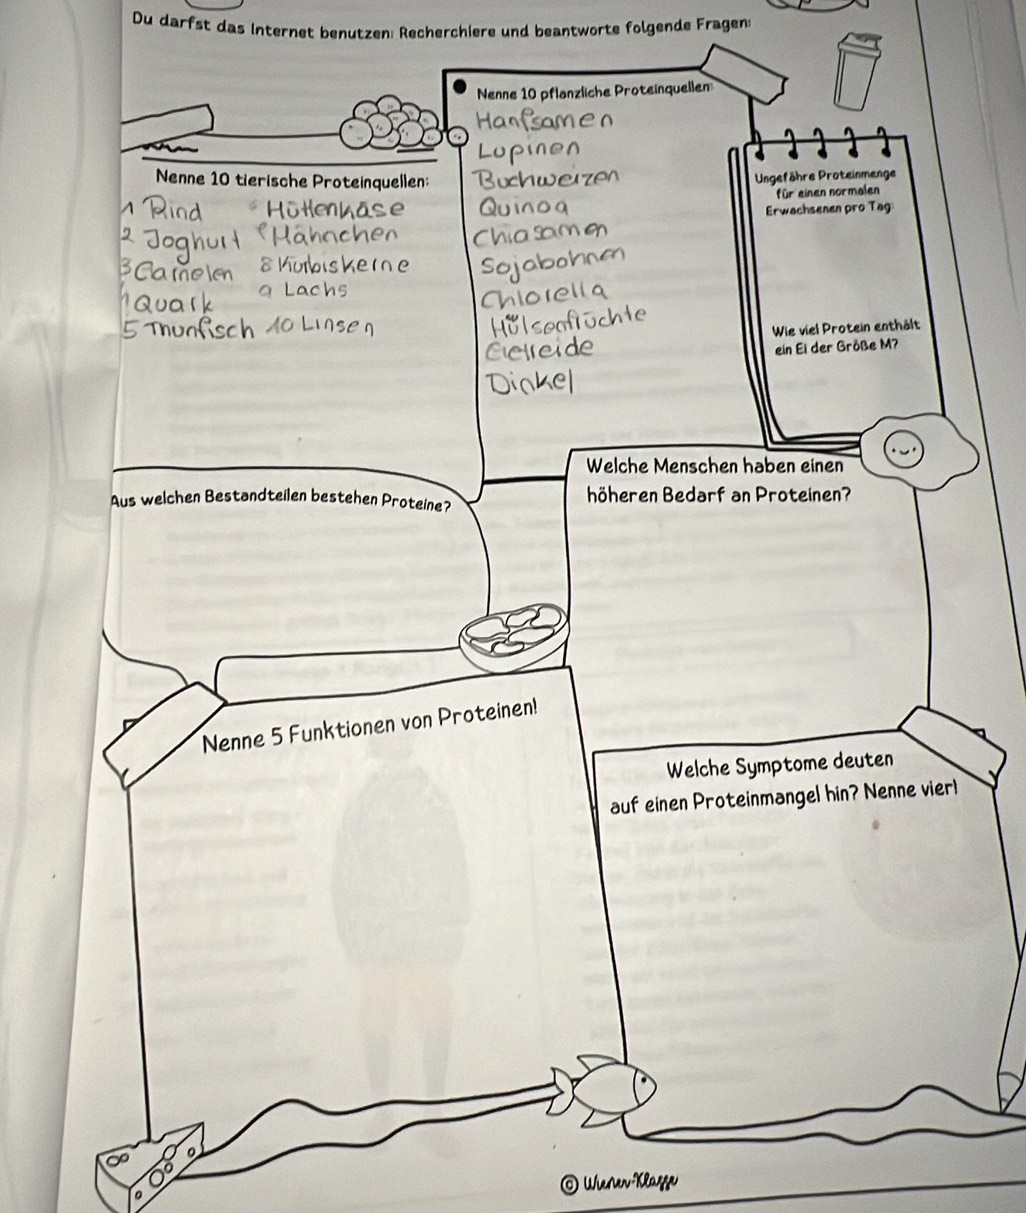 Du darfst das Internet benutzen: Recherchiere und beantworte folgende Fragen:
Nenne 10 tierische Proteinquellen:
1 Rind
2 Joghurt
3 Garnelen
4 Quark
5 Thunfisch
6 Hüttenkäse
7 Hähnchen
8 Kürbiskerne
9 Lachs
10 Linsen
Nenne 10 pflanzliche Proteinquellen:
Hanfsamen
Lupinen
Buchweizen
Quinoa
Chiasamen
Sojabohnen
Chlorella
Hülsenfrüchte
Getreide
Dinkel
Ungefähre Proteinmenge
für einen normalen
Erwachsenen pro Tag:
Wie viel Protein enthält
ein Ei der Größe M?
Aus welchen Bestandteilen bestehen Proteine?
Welche Menschen haben einen
höheren Bedarf an Proteinen?
Nenne 5 Funktionen von Proteinen!
Welche Symptome deuten
auf einen Proteinmangel hin? Nenne vier!
© Wiener-Klasse